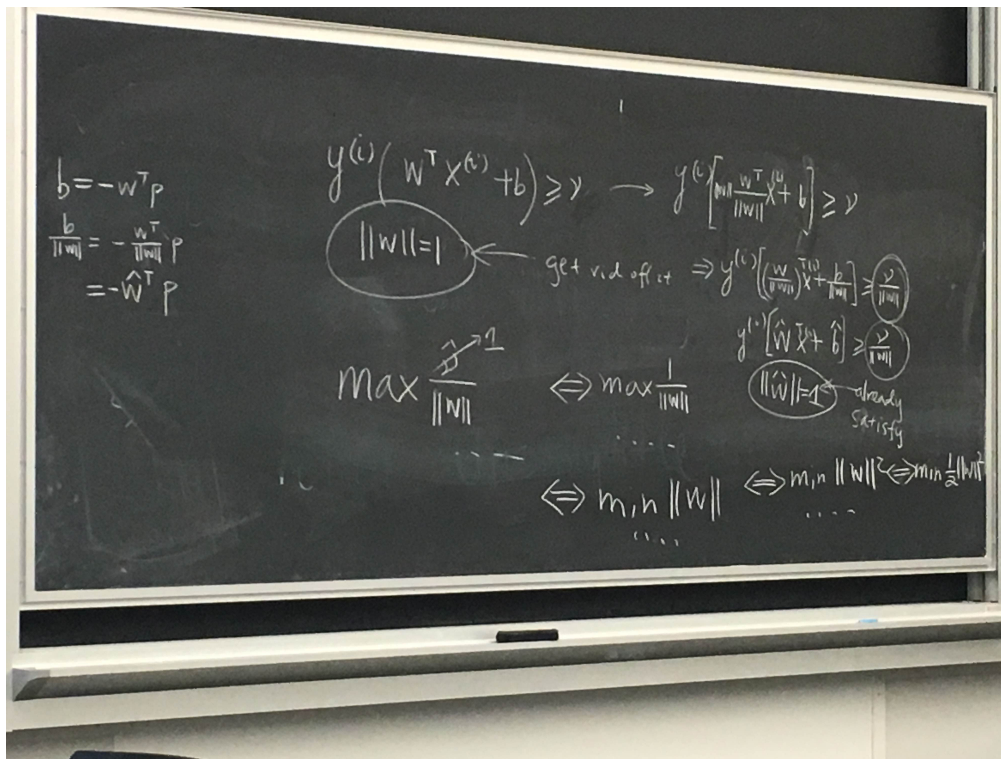 b = -wᵀp
b/||w|| = - wᵀ/||w|| p
= -ŵᵀ p
y⁽ⁱ⁾( wᵀ x⁽ⁱ⁾ + b ) ≥ ν → y⁽ⁱ⁾[ ||w|| wᵀ/||w|| x⁽ⁱ⁾ + b ] ≥ ν
||w|| = 1 ← get rid of it ⇒ y⁽ⁱ⁾[ (w/||w||)ᵀ x⁽ⁱ⁾ + b/||w|| ] ≥ ν/||w||
y⁽ⁱ⁾[ ŵᵀ x⁽ⁱ⁾ + b̂ ] ≥ ν/||w||
||ŵ|| = 1 ← already satisfy
max ν̂/||w|| → 1 ⇔ max 1/||w||
..... ....
⇔ min ||w|| ⇔ min ||w||² ⇔ min ½||w||²
.... ....